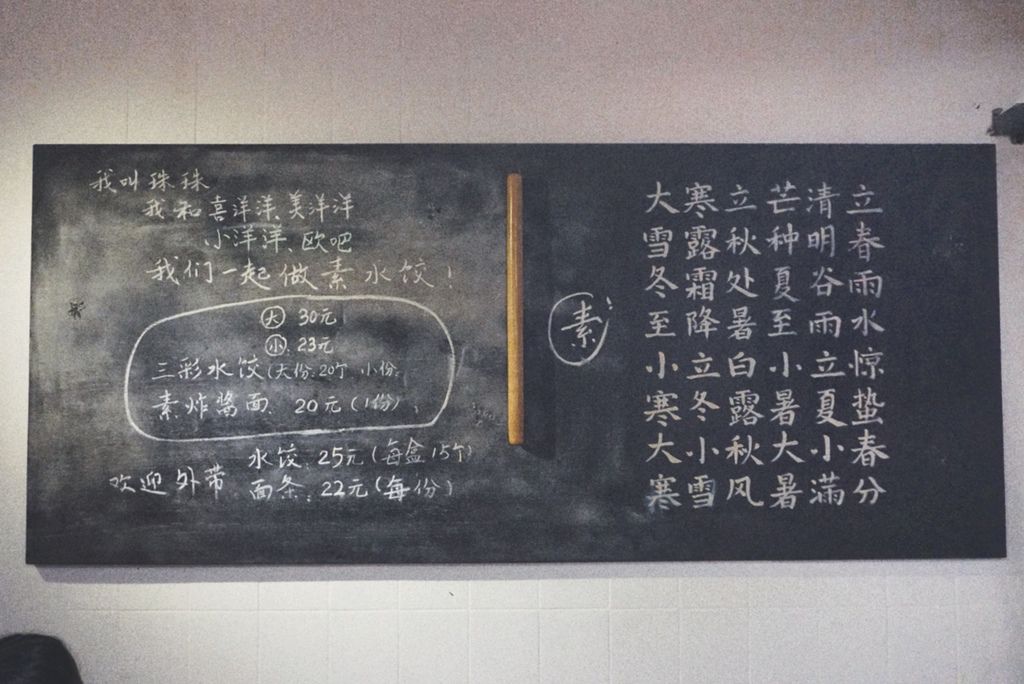 我叫珠珠
我和喜洋洋、美洋洋
小洋洋、欧吧
我们一起做素水饺!
大 30元
小 23元
三彩水饺(大份:20个 小份:
素炸酱面 20元(1份)
欢迎外带 水饺:25元(每盒15个)
面条:22元(每份)
素
立春雨水惊蛰春分
清明谷雨立夏小满
芒种夏至小暑大暑
立秋处暑白露秋风
寒露霜降立冬小雪
大雪冬至小寒大寒